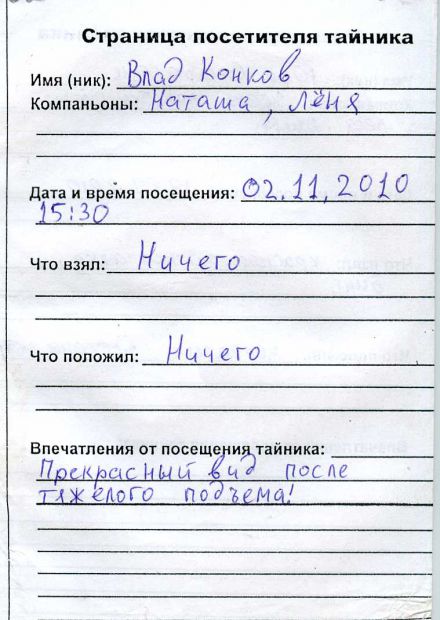 Страница посетителя тайника
Имя (ник): Влад Конков
Компаньоны: Наташа, Лёня
Дата и время посещения: 02.11.2010
15:30
Что взял: Ничего
Что положил: Ничего
Впечатления от посещения тайника:
Прекрасный вид после
тяжёлого подъема!